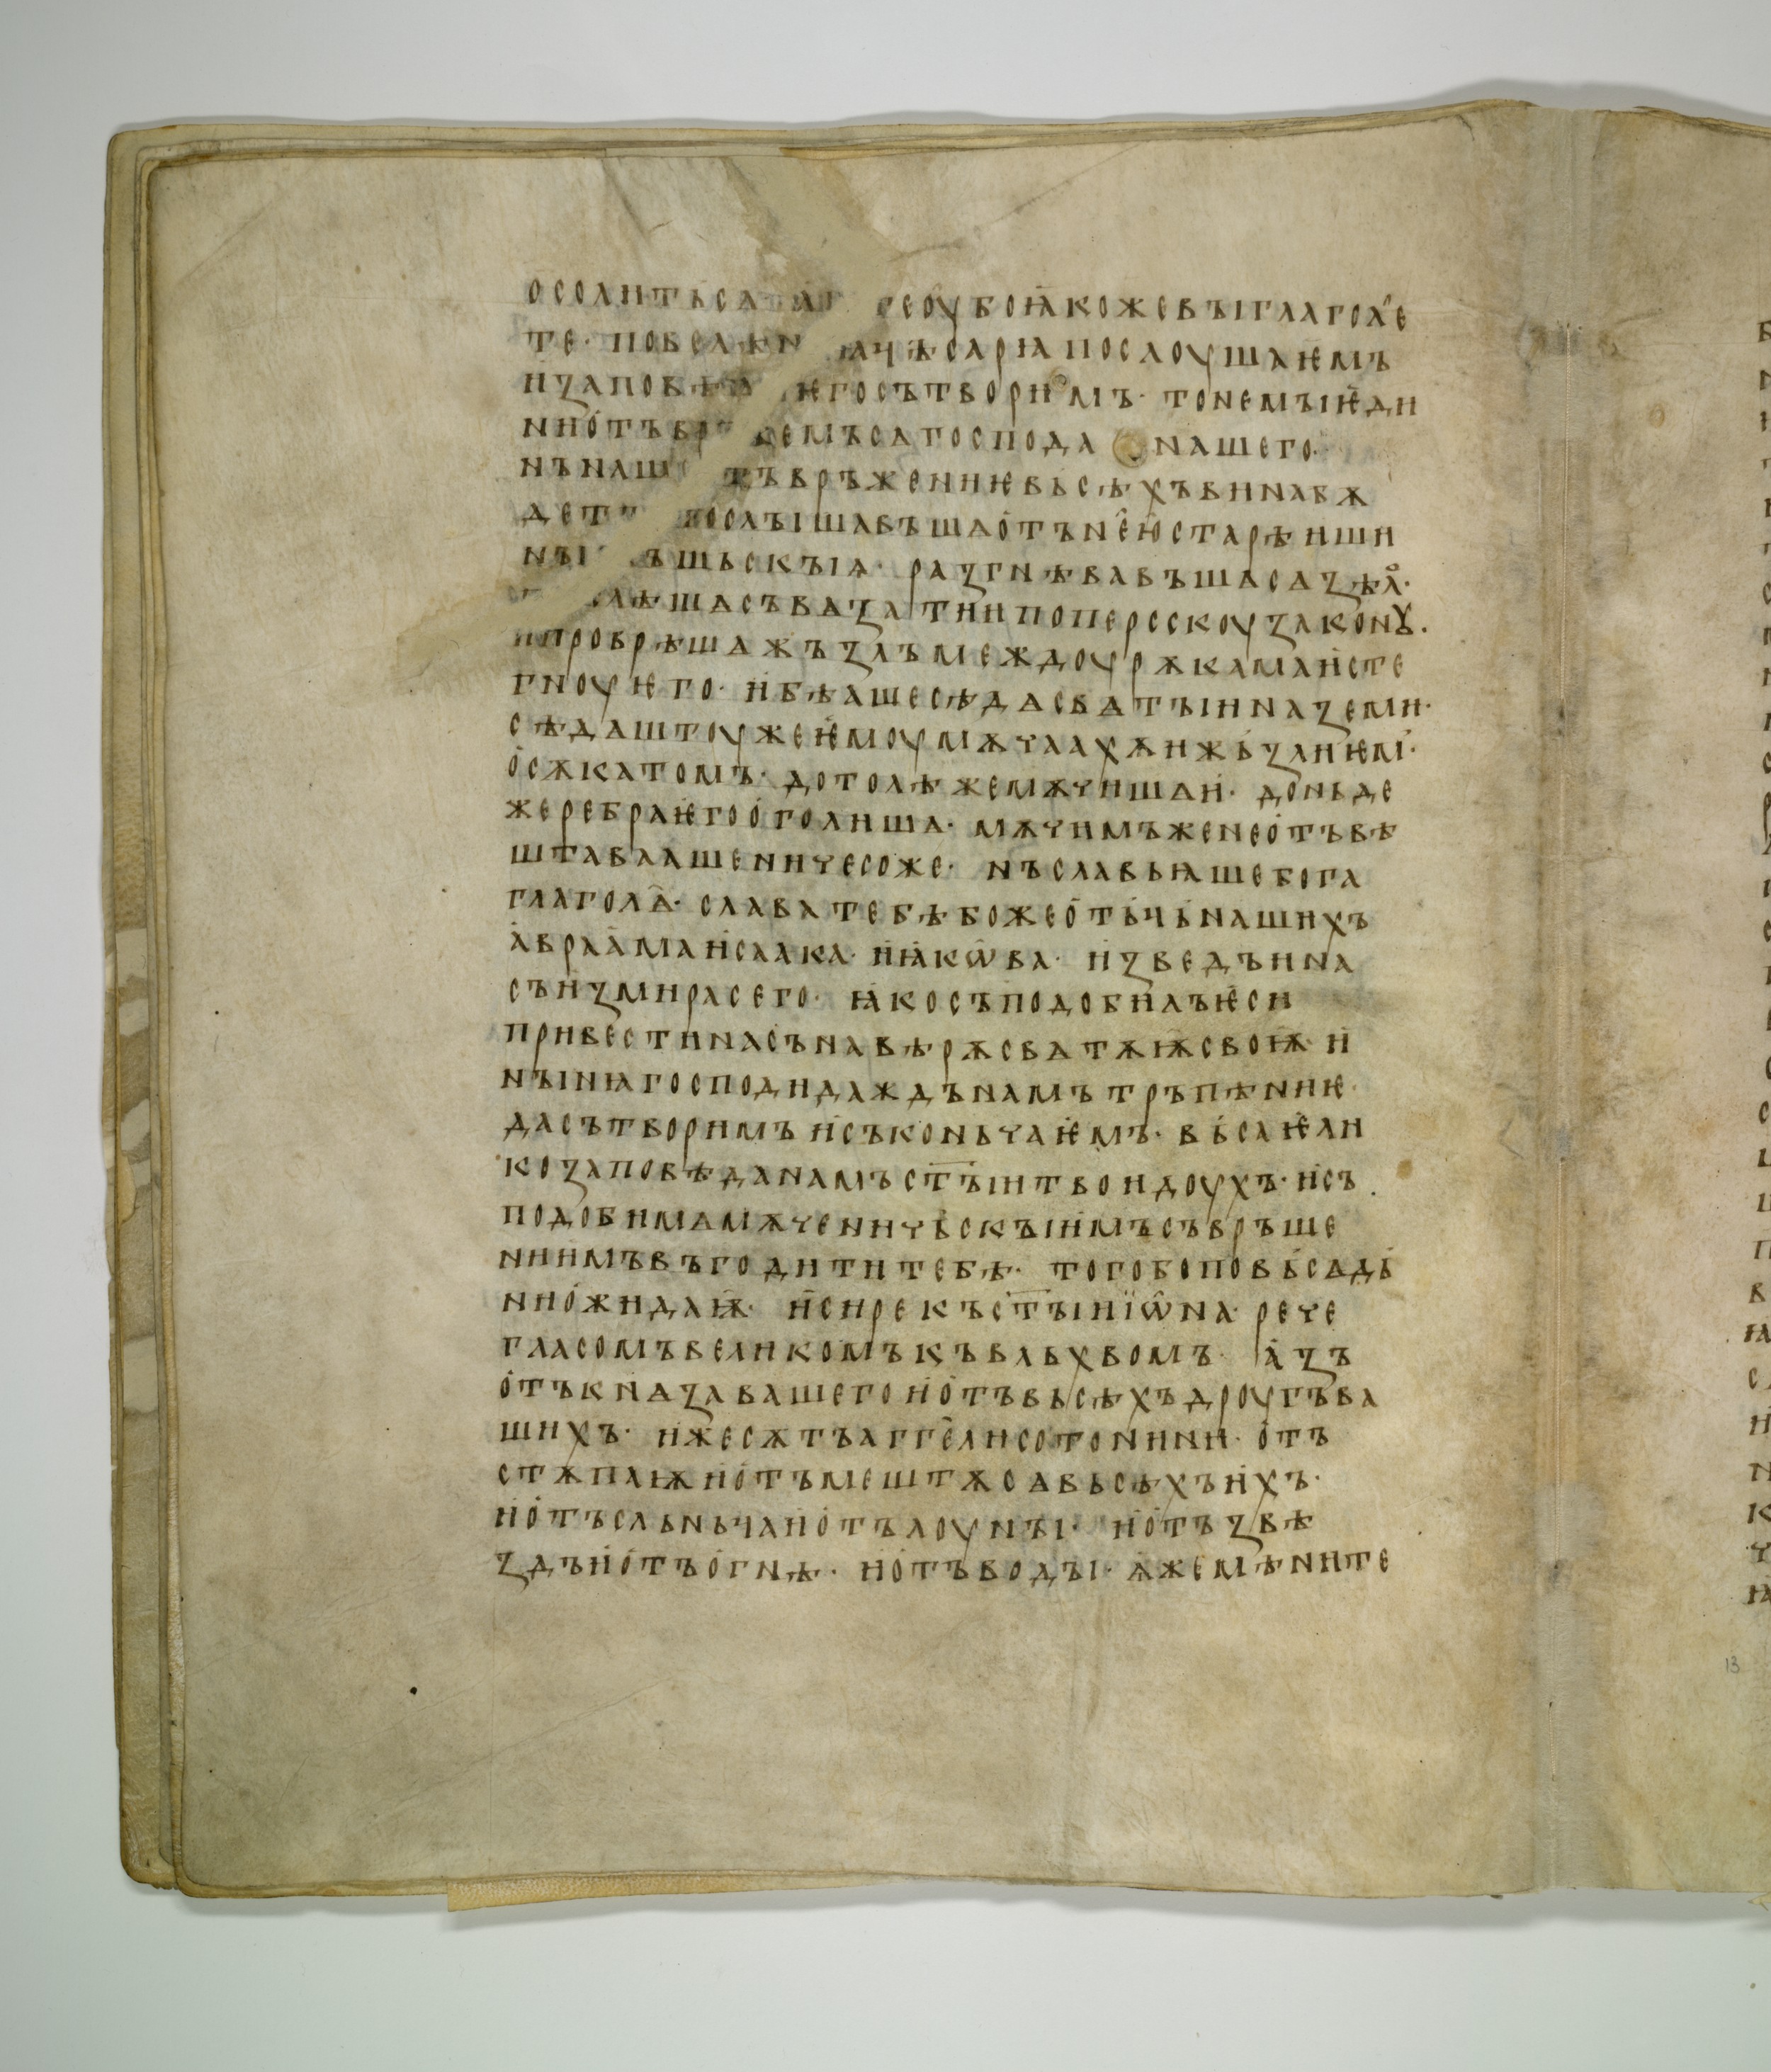 осолитъсѧ реоубоꙗ҅кожевꙑглаголе҄
те· повел ꙗчѣсарꙗпослоушаѥмъ
изаповѣ ѥгосътворимъ· тонемꙑѥ҅ди
нио҅тъвр емъсѧгоспода нашего·
нънаш тъврѣжениѥвьсѣхъвинабѫ
дет послꙑшавъшао҅тънею҄старѣиши
нꙑ ъшьскꙑѧ· разгнѣвавъшасѧѕѣло·
лѣшасъвѧзатиипоперсскоузаконꙋ·
ипроврѣшѧжъзлъмеждоурѫкамаи҅сте
гноуѥго· и҅бѣашесѣдѧсвѧтꙑиназеми·
сѣдѧштоужеѥ҅моумѫчаахѫижь҅злиѥмь·
о҅сѫкатомъ· дотолѣжемѫчишѧи҅· доньде
жеребраѥ҅гоо҅голиша· мѫчимъженео҅тъвѣ
штаваашеничесоже· нъславьꙗшебога
глаголѧ҄· славатебѣбожео҅ть҅чь҅нашихъ
а҅враа҅маи҅саака· и҅ꙗ҅кѡ҄ва· и҅зведъина
съи҅змирасего· ꙗ҅косъподобилъѥ҅си
привестинасънавѣрѫсвѧтѫѭ҅своѭ҅· и҅
нꙑнꙗгосподидаждънамътръпѣниѥ·
дасътворимъи҅съконьчаѥ҅мъ· вь҅саѥ҅ли
козаповѣданамъст҃ꙑитвоидоухъ· и҅съ
подобимѧмѫченичь҅скꙑи҅мъсъвръше
нии҅мъвъгодититебѣ· тогобоповь҅сѧдь҅
нио҅жидаѭ҅· и҅сирекъст҃ꙑиїѡ҄на· рече
гласомъвеликомъкъвльхвомъ· а҅зъ
о҅тъкнѧзавашегои҅о҅тъвьсѣхъдроугъва
шихъ· ижесѫтъаггел҄исотонини· о҅тъ
стѫпаѭи҅о҅тъмештѫсѧвьсѣхъи҅хъ·
и҅о҅тъсльньчаи҅о҅тълоунꙑ· и҅о҅тъзвѣ
здъи҅о҅тъо҅гнѣ· и҅о҅тъводꙑ· ѩжемѣните
13